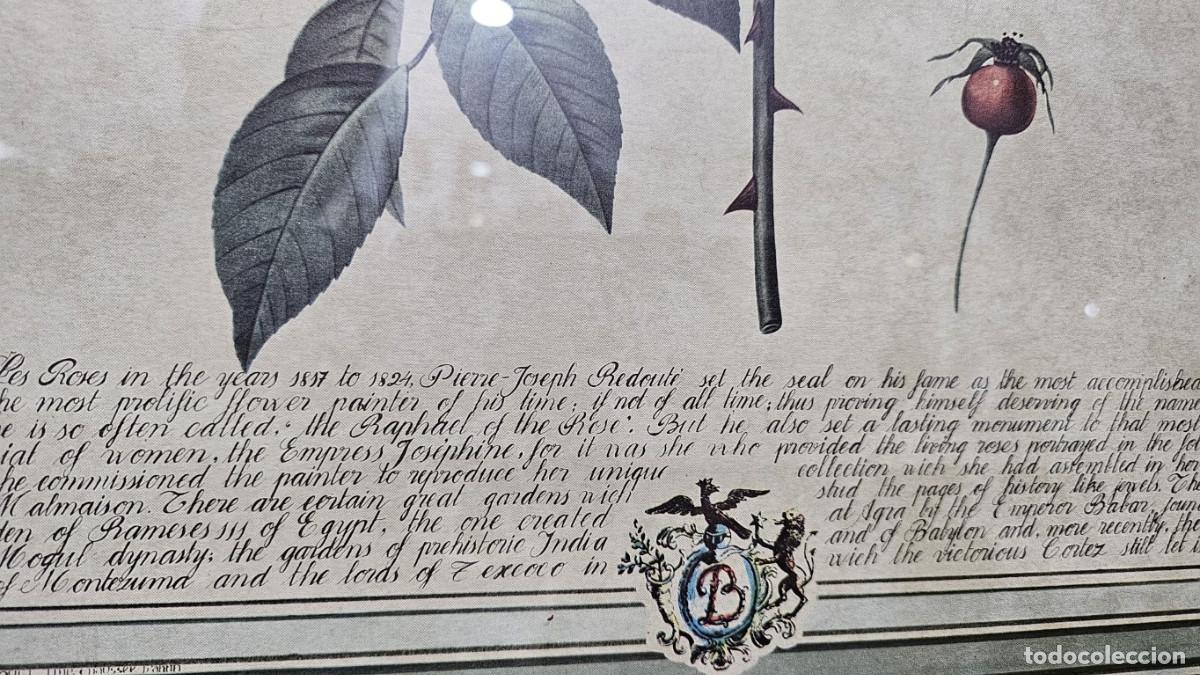 Les Roses in the years 1817 to 1824, Pierre-Joseph Redouté set the seal on his fame as the most accomplished
he most prolific flower painter of his time; if not of all time; thus proving himself deserving of the name
e is so often called. "the Raphael of the Rose". But he also set a lasting monument to that most
of women, the Empress Josephine, for it was she who provided the living roses portrayed in the
he commissioned the painter to reproduce her unique collection wich she had assembled in her
Malmaison. There are certain great gardens wich stud the pages of history like jewels. Th
den of Ramesessss of Egypt, the one created at Agra by the Emperor Babar, foun
Mogul dynasty; the gardens of prehistoric India and of Babylon and, more recently, th
of Montezuma and the lords of Texcoco in wich the victorious Cortez still set
B
todocoleccion